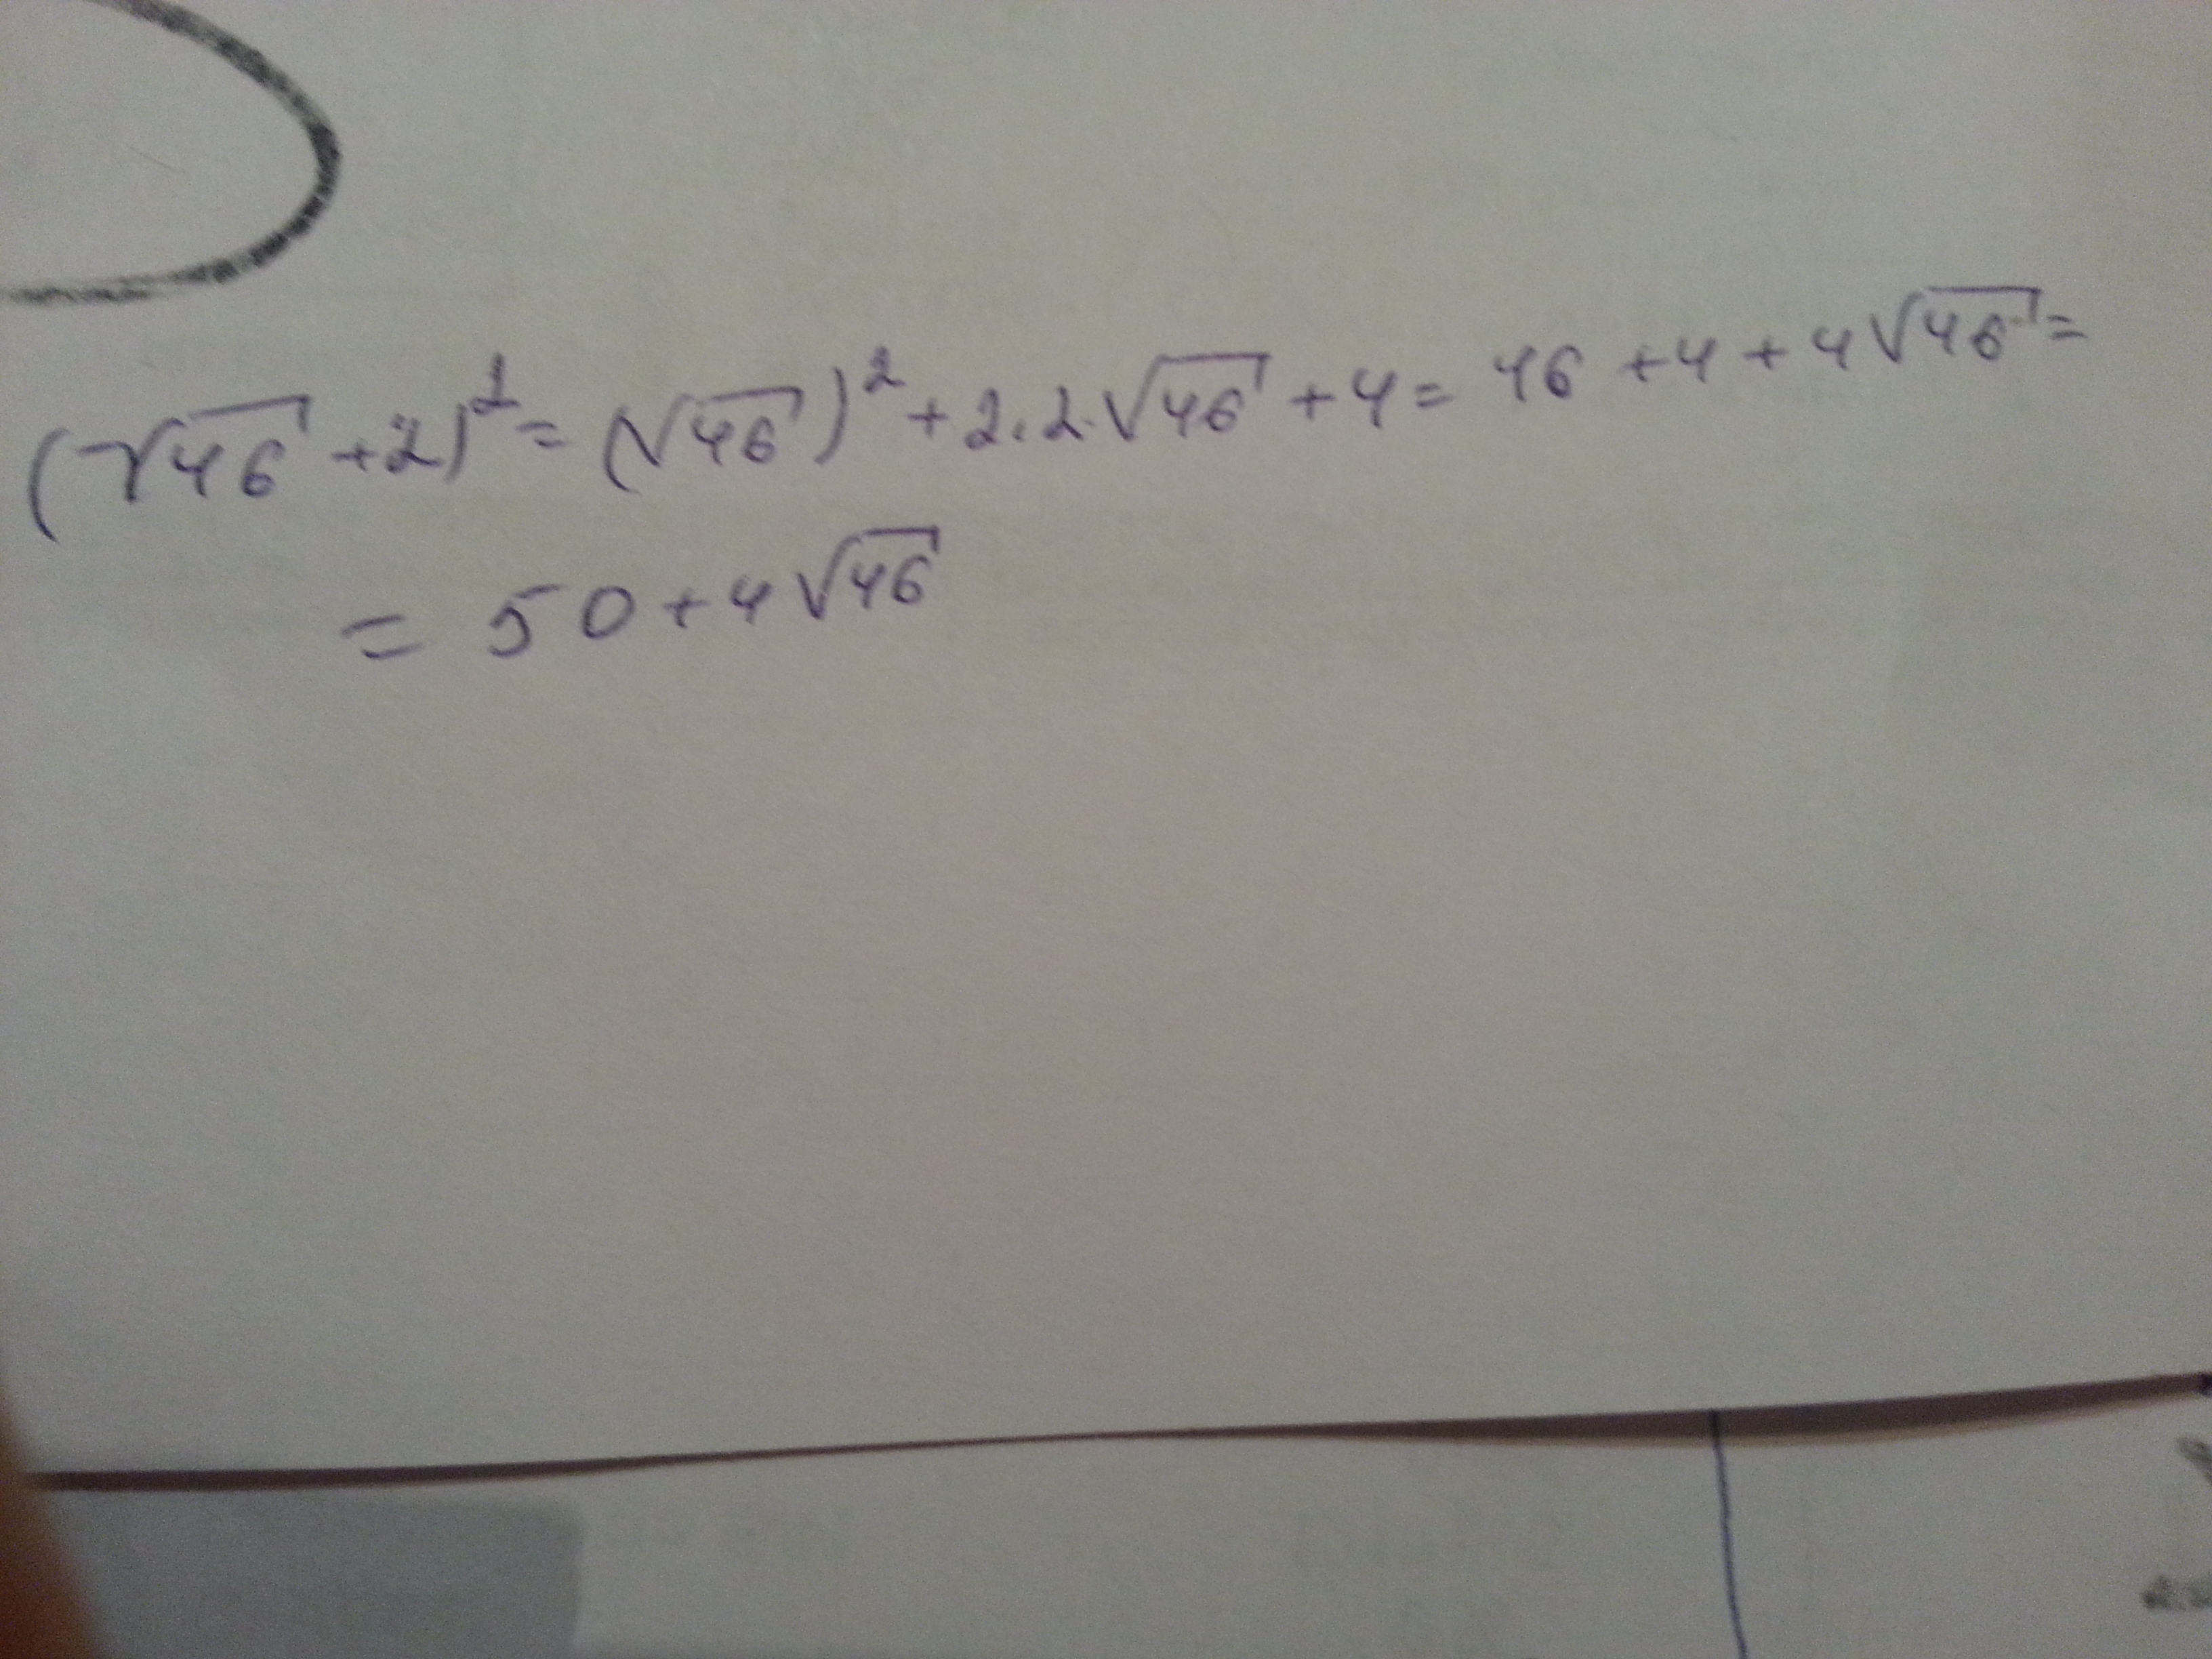 (√46 + 2)² = (√46)² + 2·2·√46 + 4 = 46 + 4 + 4√46 =
= 50 + 4√46